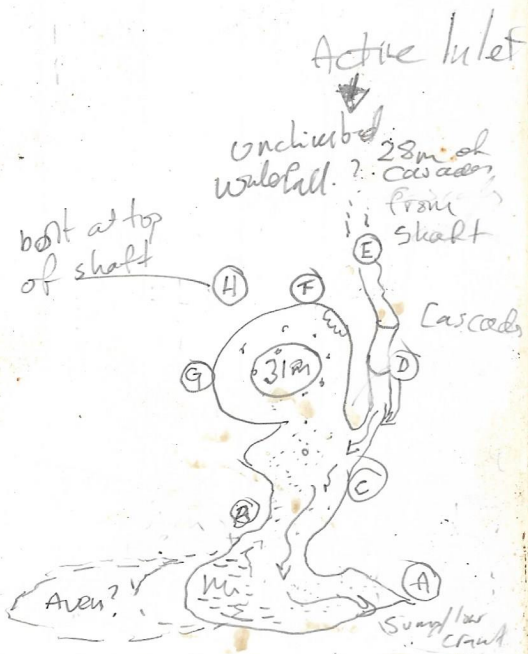 Active Inlet
unclimbed
waterfall. ?
28m of
cascades
from
shaft
bolt at top
of shaft
E
H
F
Cascades
31m
D
G
C
B
A
Aven?
Sump/low
crawl